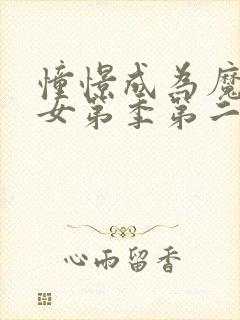 憧憬成为魔
女第季第二
心雨留香